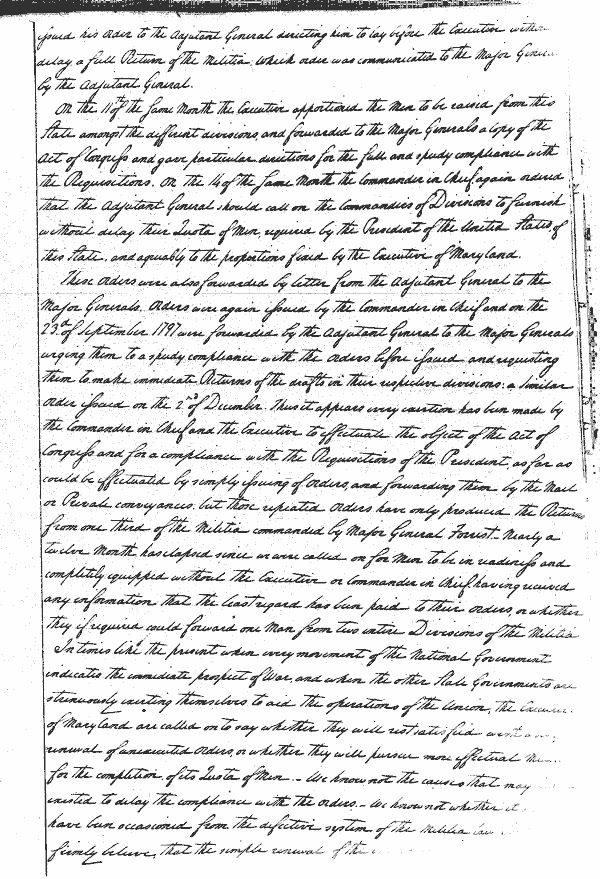 issued his order to the Adjutant General directing him to lay before the Executive without
delay a full Return of the Militia; which order was communicated to the Major General
by the Adjutant General.
On the 11th of the same Month the Executive apportioned the Men to be raised from this
State amongst the different divisions, and forwarded to the Major Generals a copy of the
Act of Congress and gave particular directions for the full and speedy compliance with
the Requisitions. On the 14 of the same Month the Commander in Chief again ordered
that the Adjutant General should call on the Commanders of Divisions to furnish
without delay their Quota of Men, required by the President of the United States of
this State, and agreeably to the proportions fixed by the Executive of Maryland.
These orders were also forwarded by letter from the Adjutant General to the
Major Generals. Orders were again issued by the Commander in Chief and on the
23d of September 1797 were forwarded by the Adjutant General to the Major Generals
urging them to a speedy compliance with the orders before issued and requesting
them to make immediate Returns of the drafts in their respective divisions: a similar
order issued on the 2nd of December. Thus it appears every exertion has been made by
the Commander in Chief and the Executive to effectuate the object of the Act of
Congress and for a compliance with the Requisitions of the President, as far as
could be effectuated by simply issuing of orders, and forwarding them by the Mail
or Private conveyances: but those repeated orders have only produced the Return
from one third of the Militia commanded by Major General Forrest. Nearly a
twelve Month has elapsed since we were called on for Men to be in readiness and
completely equipped without the Executive or Commander in Chief having received
any information that the least regard has been paid to their orders, or whether
they if required could forward one Man from two entire Divisions of the Militia
In times like the present when every movement of the National Government
indicates the immediate prospect of War, and when the other State Governments are
strenuously exerting themselves to aid the operations of the Union, the Executive
of Maryland are called on to say whether they will rest satisfied with a
renewal of unexecuted orders, or whether they will pursue more effectual
for the completion of its Quota of Men. - We know not the causes that may
existed to delay the compliance with the orders. - We know not whether it
have been occasioned from the defective system of the Militia law
firmly believe, that the simple renewal of the